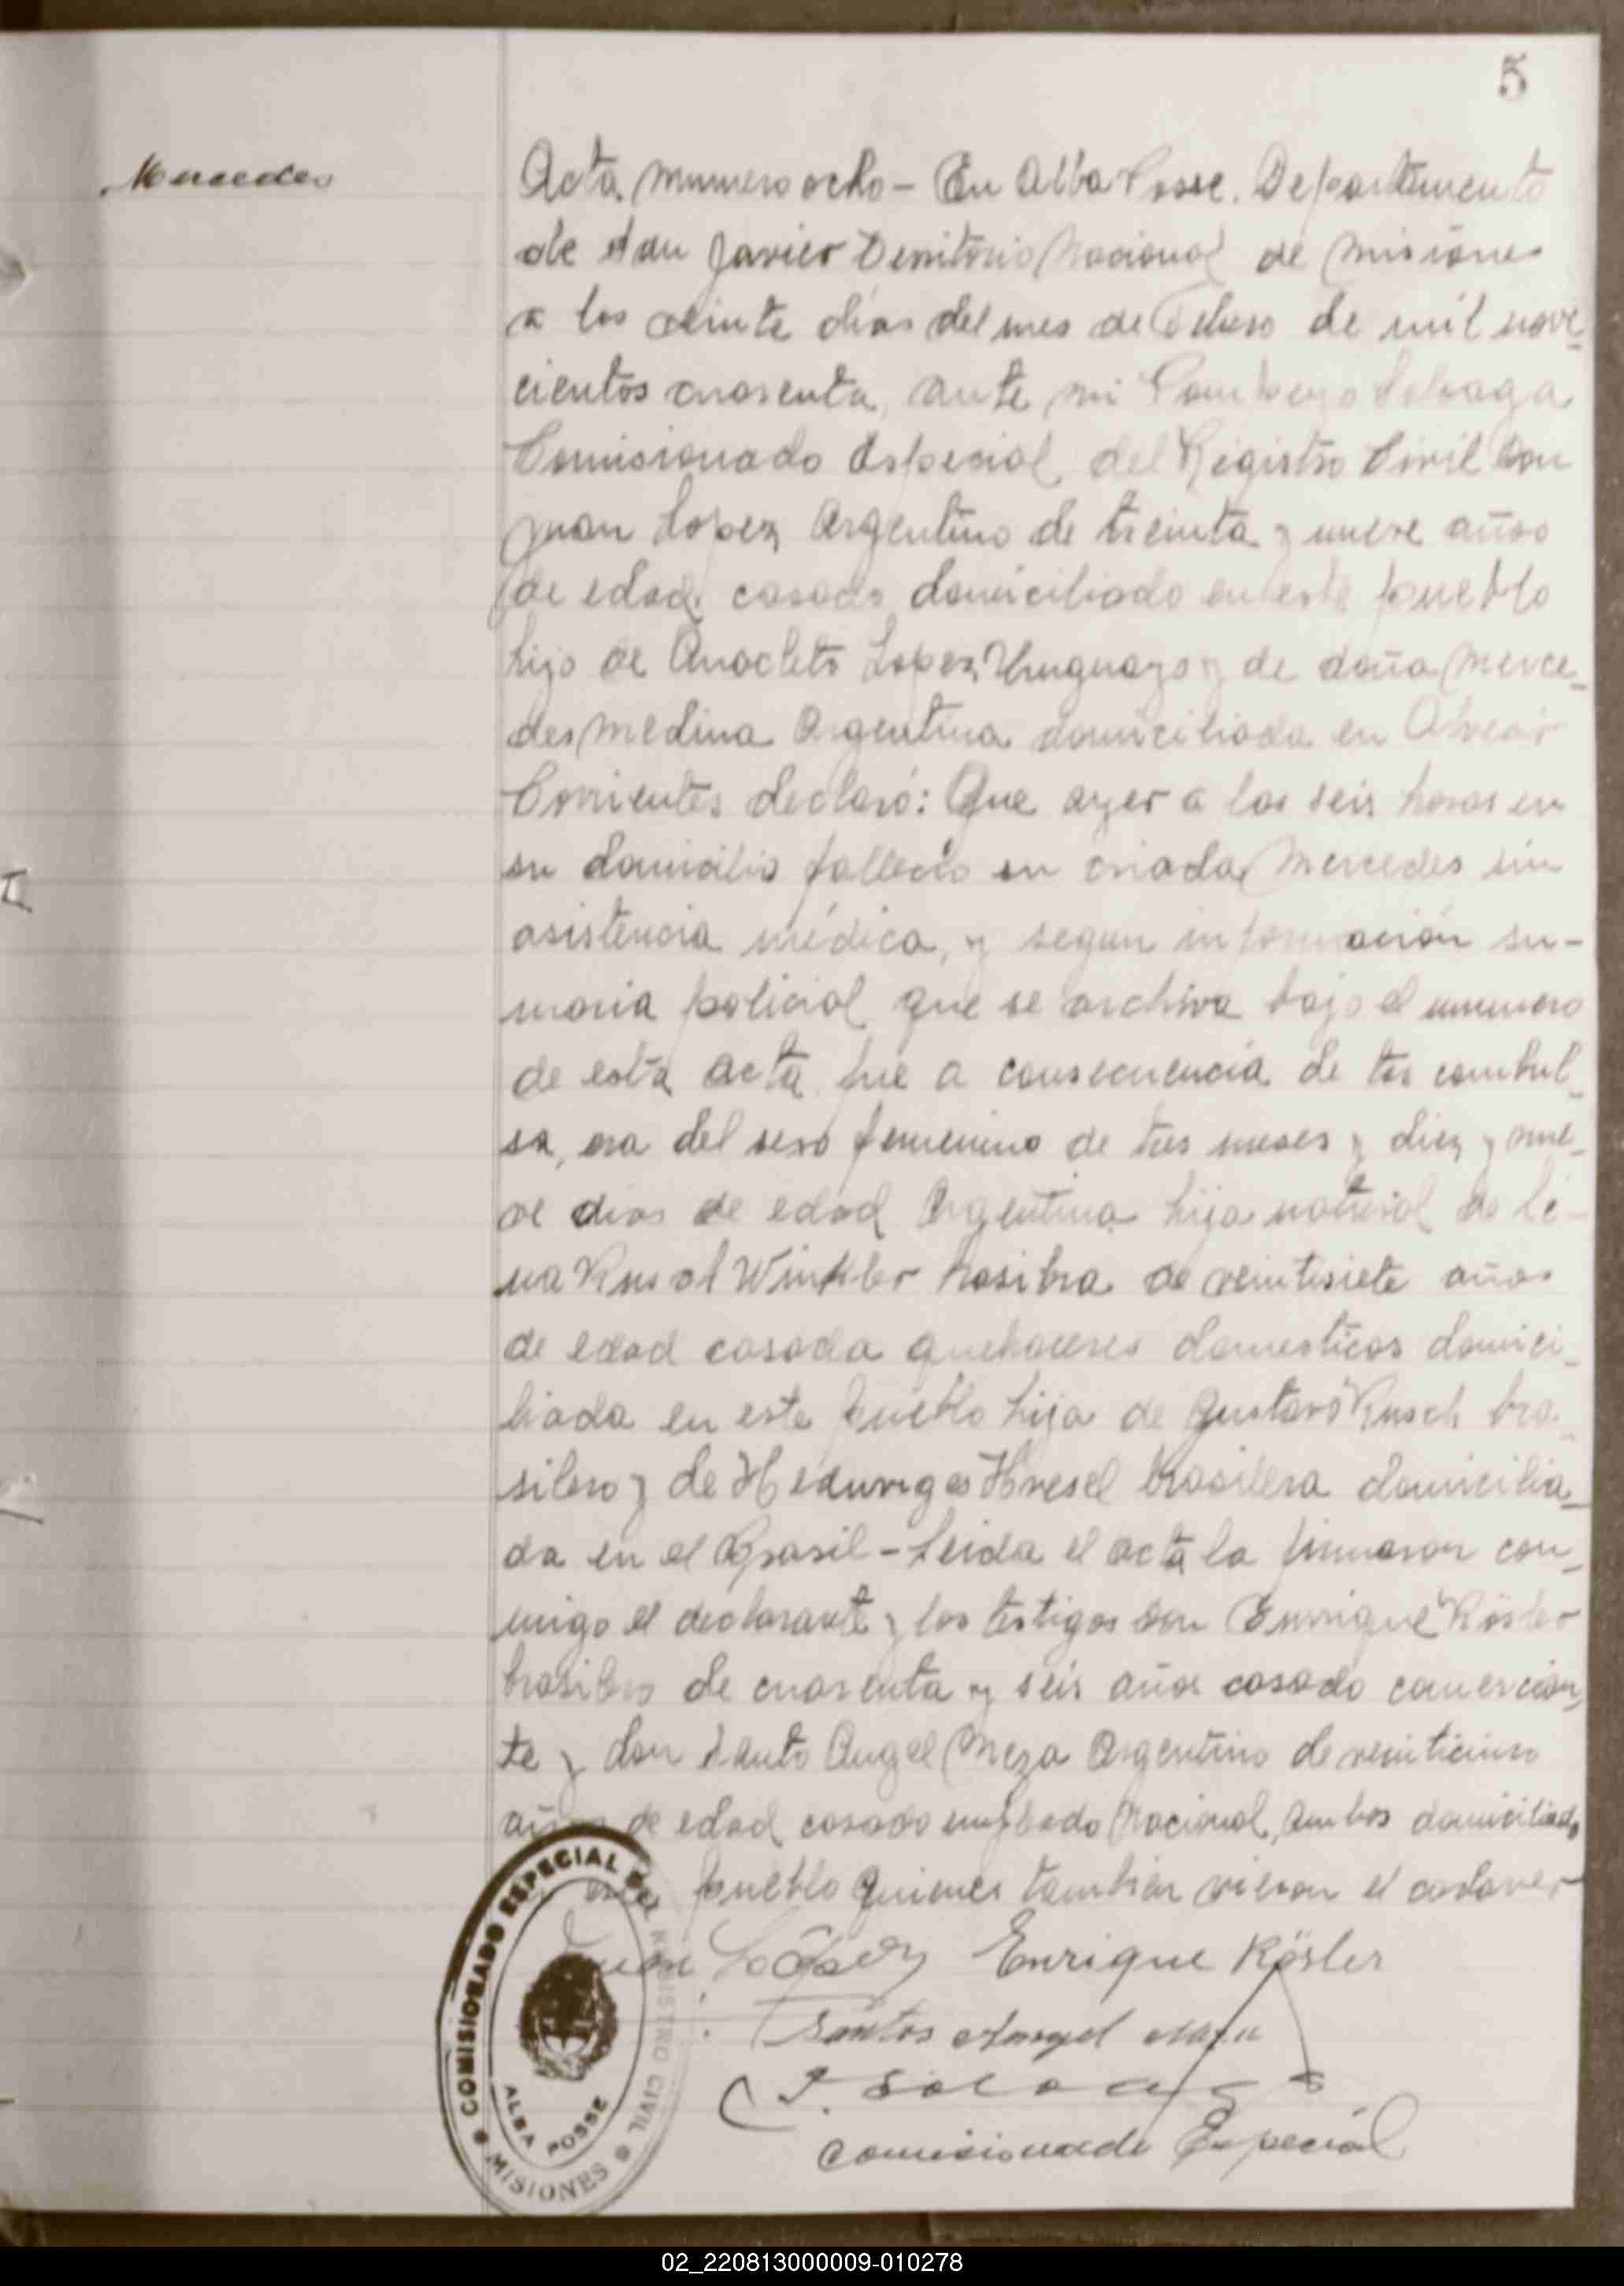 5
Mercedes
Acta numero ocho - En Alba Posse. Departamento
de San Javier Territorio Nacional de Misiones
a los veinte dias del mes de Febrero de mil nove-
cientos cuarenta, ante mi
Comisionado Especial del Registro Civil don
Juan Lopez Argentino de treinta y nueve años
de edad, casado domiciliado en este pueblo
hijo de Anacleto Lopez, Uruguayo y de doña Merce-
des Medina Argentina domiciliada en Alvear
Corrientes declaró: Que ayer a las seis horas en
su domicilio falleció su criada Mercedes sin
asistencia médica, y segun información su-
maria policial que se archiva bajo el numero
de esta acta fue a consecuencia de tos combul-
sa, era del sexo femenino de tres meses y diez y nue-
ve dias de edad Argentina hija natural de
Winkler de veintisiete años
de edad casada quehaceres domesticos domici-
liada en este pueblo hija de Gustavo Rusch bra-
silero y de Heduviges brasilera domicilia-
da en el Brasil - Leida el acta la firmaron con-
migo el declarante y los testigos don Enrrique Rösler
brasilero de cuarenta y seis años casado comercian-
te y don Santo Angel Meza Argentino de veinticinco
años de edad casado empleado Nacional, ambos domiciliados
este pueblo quienes tambien vieron el cadaver
Juan López Enrique Rösler
Santos Angel Meza
Comisionado Especial
COMISIONADO ESPECIAL DEL REGISTRO CIVIL
ALBA POSSE
MISIONES
02_220813000009-010278